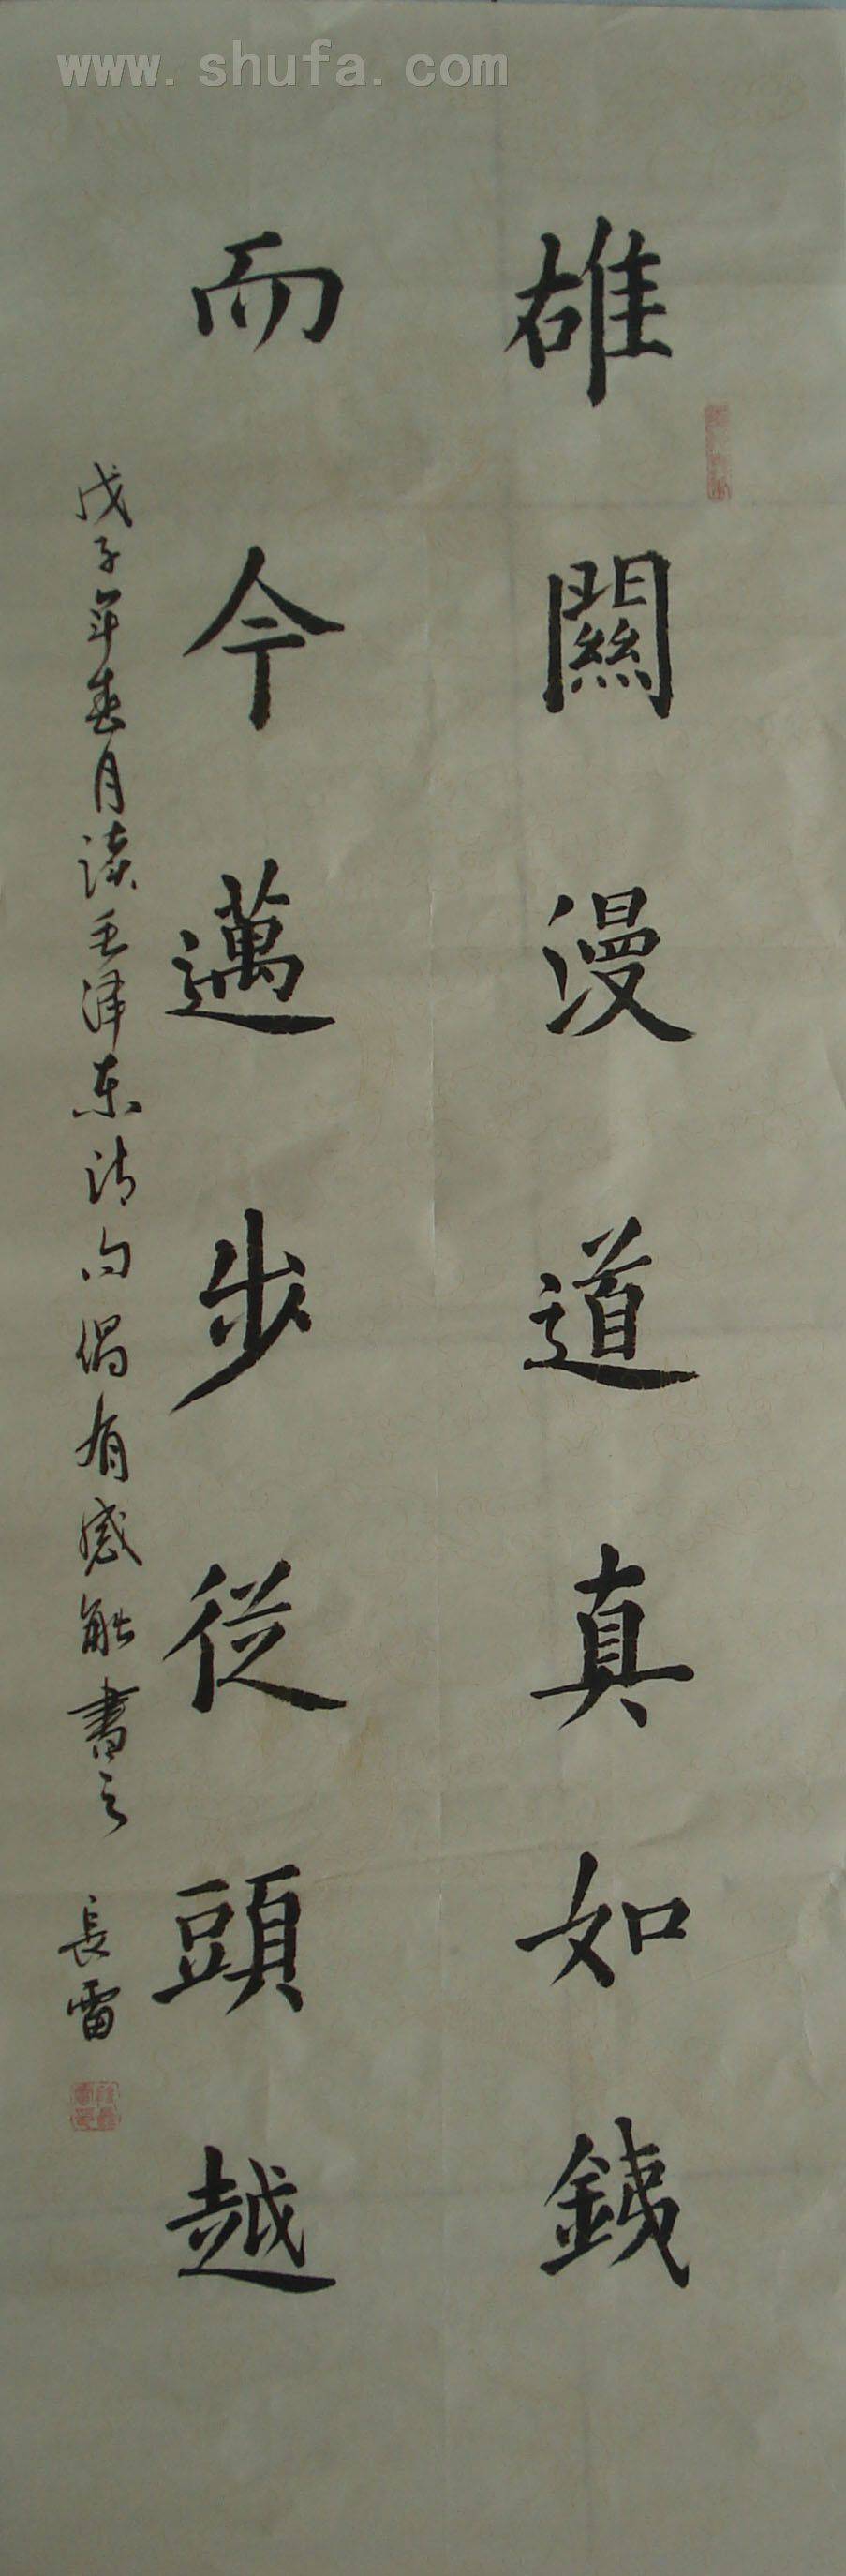 www.shufa.com
雄關漫道真如鐵
而今邁步從頭越
戊子年春月读毛泽东诗句偶有感触書之 長雷